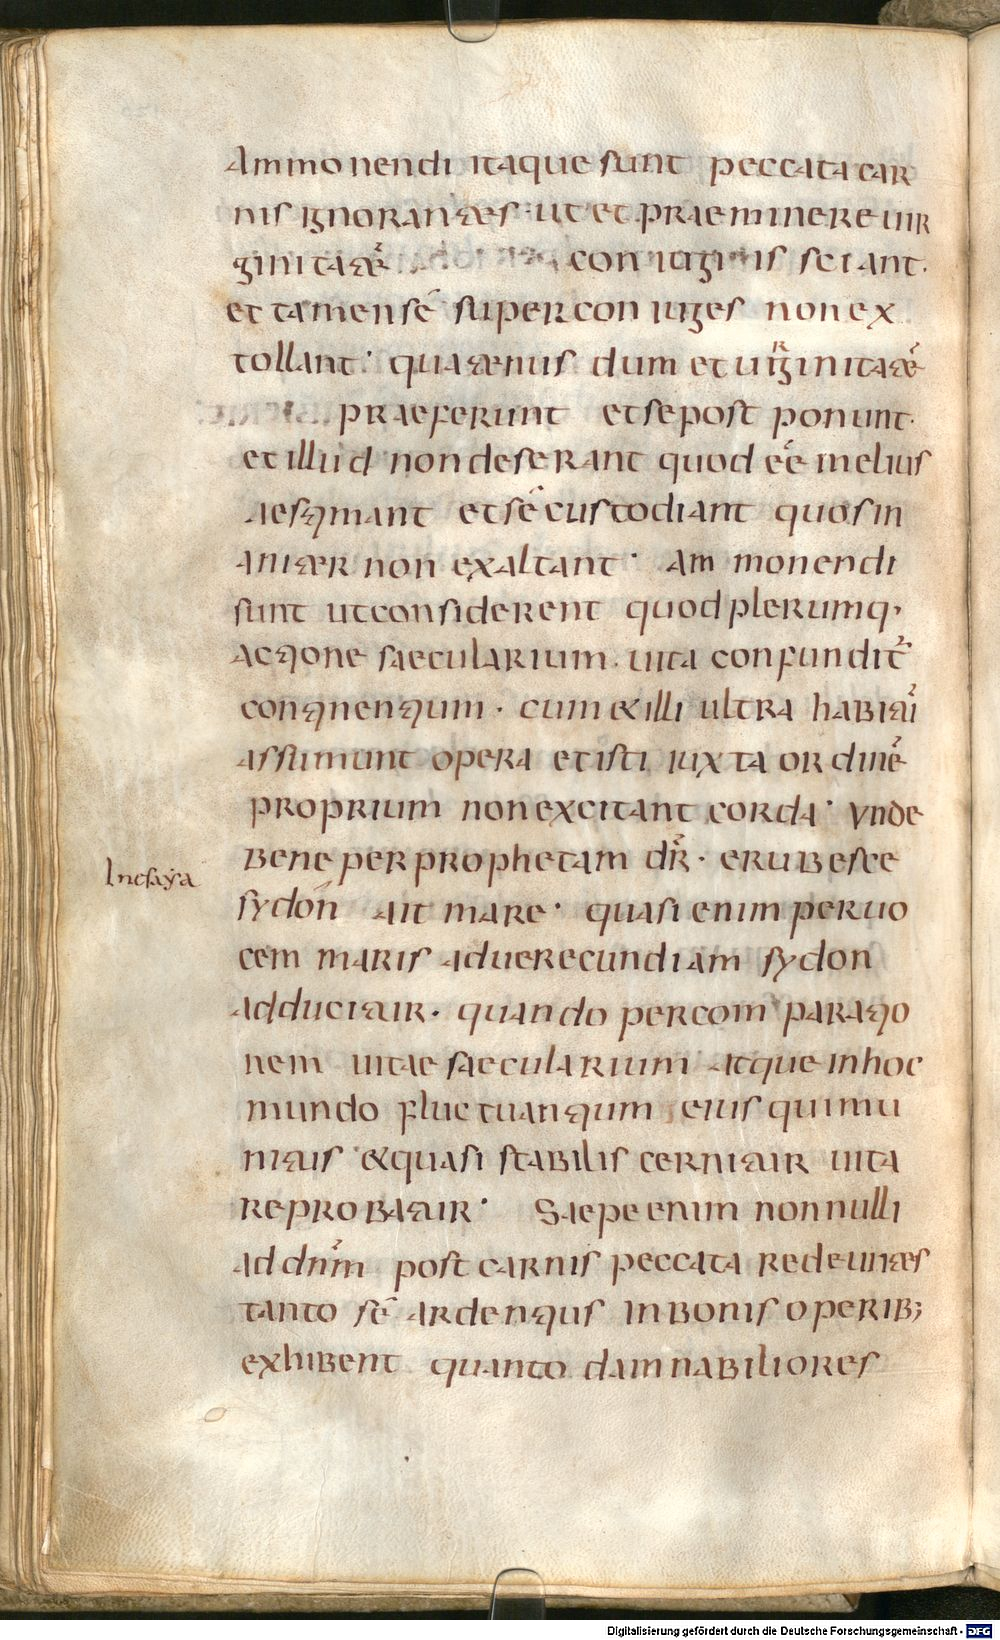 Ammonendi itaque sunt peccata car
nis ignorantes · ut et praeminere uir
ginitatē coniugiis sciant.
et tamen sē super coniuges non ex
tollant · quatenus dum et uirginitatē
praeferunt et se post ponunt.
et illud non deserant quod eē melius
aestimant et sē custodiant quo sin
aniter non exaltant · Ammonendi
sunt ut considerent quod plerumq·
actione saecularium. uita confundit̄
continentium · cum & illi ultra habitū
assumunt opera et isti iuxta ordinē
proprium non excitant corda · Vnde
bene per prophetam dr̄ · erubesce
In esaya
sydon ait mare · quasi enim per uo
cem maris ad uerecundiam sydon
adducitur · quando per comparatio
nem uitae saecularium atque in hoc
mundo fluctuantium eius qui mu
nitus & quasi stabilis cernitur uita
reprobatur · Saepe enim non nulli
ad dn̄m post carnis peccata redeuntes
tanto sē ardentius in bonis operib;
exhibent quanto damnabiliores
Digitalisierung gefördert durch die Deutsche Forschungsgemeinschaft - DFG